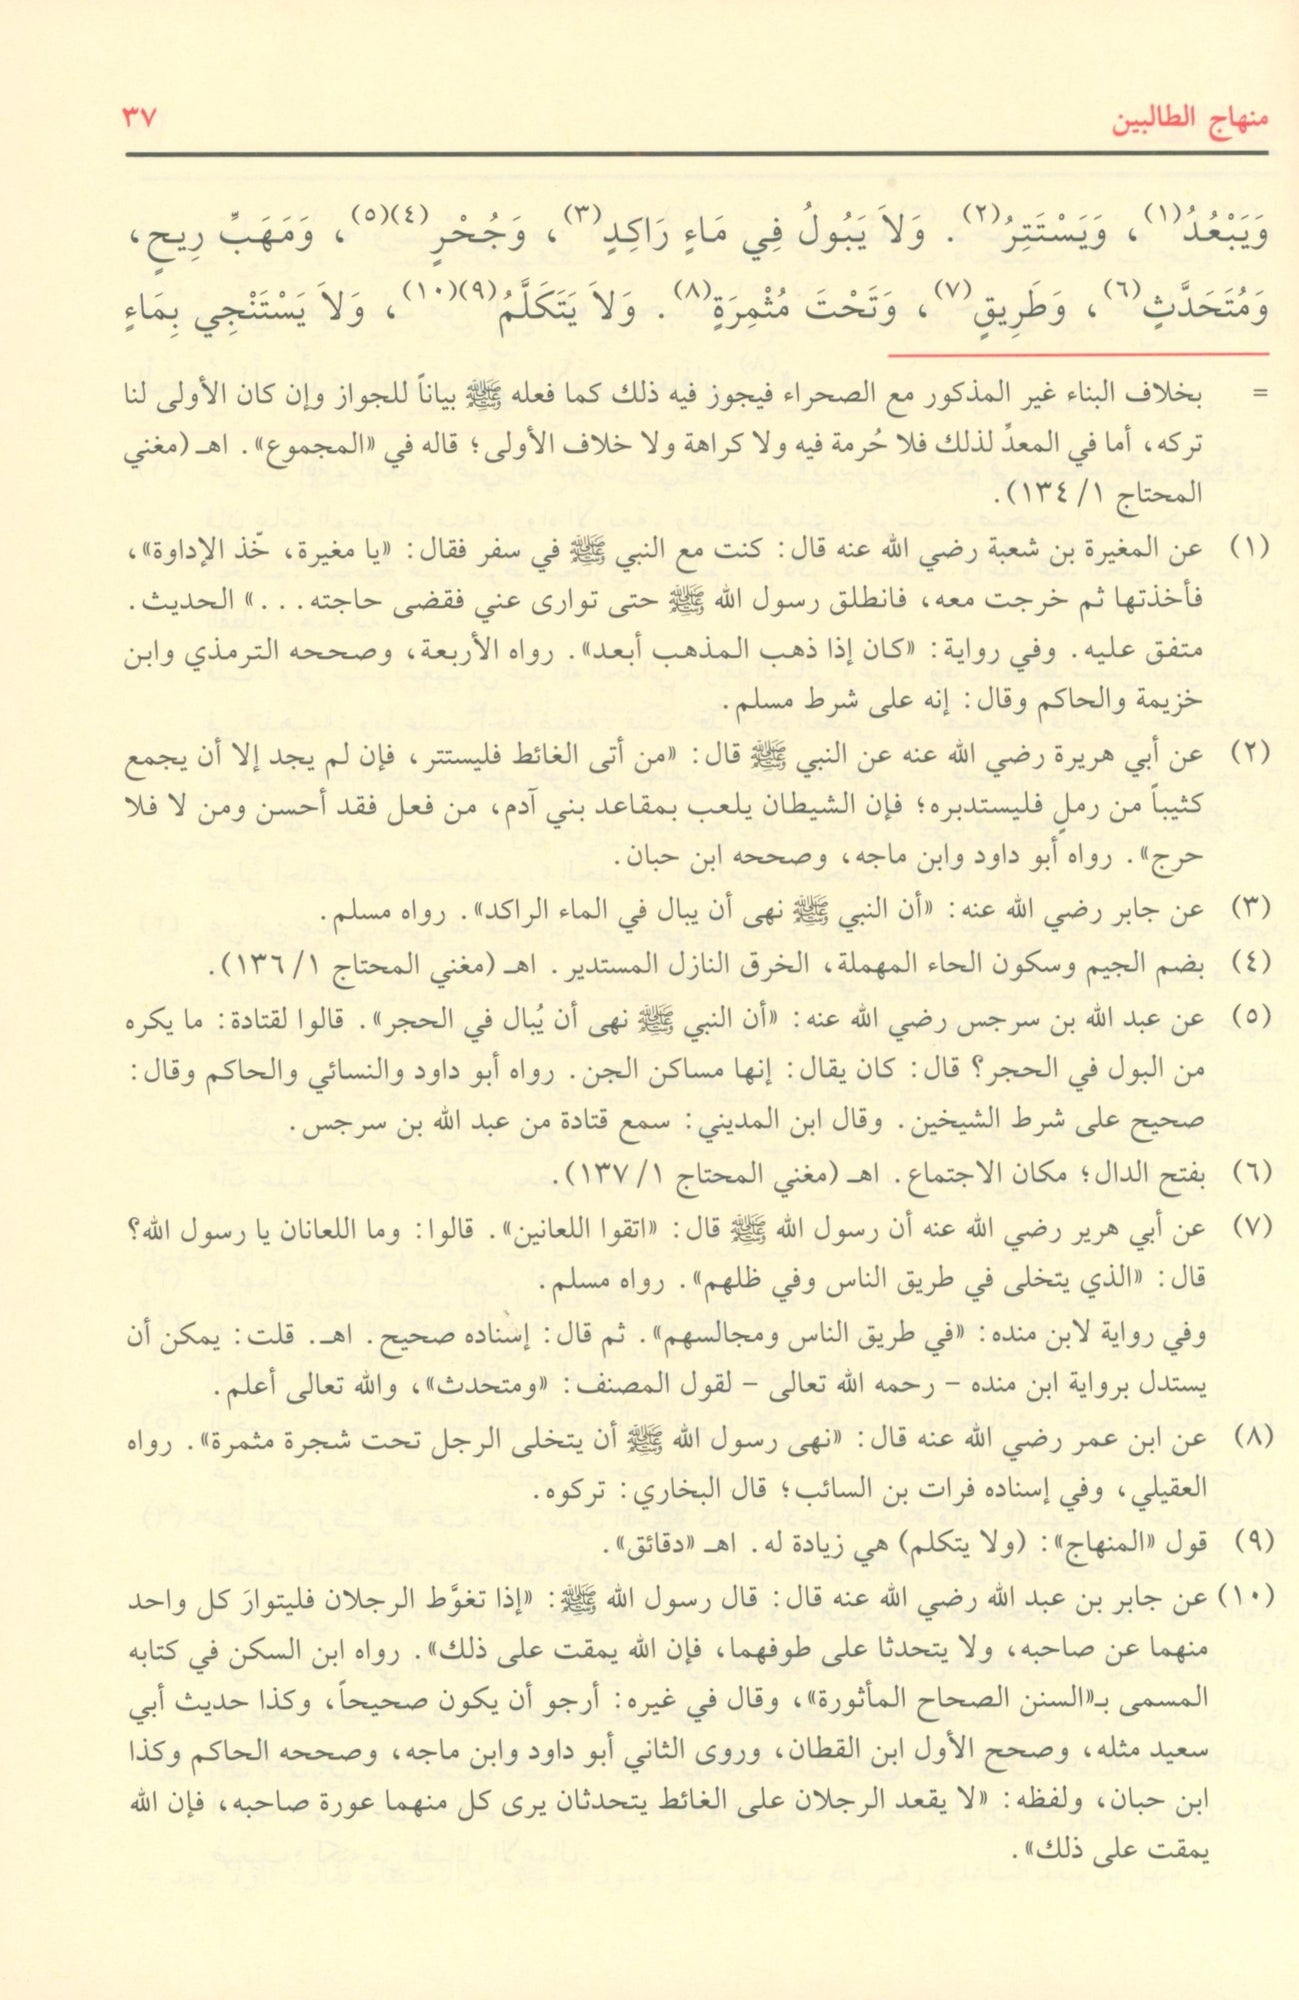 منهاج الطالبين ٣٧
وَيَبْعُدُ(١)، وَيَسْتَتِرُ(٢). وَلاَ يَبُولُ فِي مَاءٍ رَاكِدٍ(٣)، وَجُحْرٍ(٤)(٥)، وَمَهَبِّ رِيحٍ،
وَمُتَحَدَّثٍ(٦)، وَطَرِيقٍ(٧)، وَتَحْتَ مُثْمِرَةٍ(٨). وَلاَ يَتَكَلَّمُ(٩)(١٠)، وَلاَ يَسْتَنْجِي بِمَاءٍ
= بخلاف البناء غير المذكور مع الصحراء فيجوز فيه ذلك كما فعله ﷺ بياناً للجواز وإن كان الأولى لنا
تركه، أما في المعدِّ لذلك فلا حُرمة فيه ولا كراهة ولا خلاف الأولى؛ قاله في «المجموع». اهـ (مغني
المحتاج ١/ ١٣٤).
(١) عن المغيرة بن شعبة رضي الله عنه قال: كنت مع النبي ﷺ في سفر فقال: «يا مغيرة، خّذ الإداوة»،
فأخذتها ثم خرجت معه، فانطلق رسول الله ﷺ حتى توارى عني فقضى حاجته...» الحديث.
متفق عليه. وفي رواية: «كان إذا ذهب المذهب أبعد». رواه الأربعة، وصححه الترمذي وابن
خزيمة والحاكم وقال: إنه على شرط مسلم.
(٢) عن أبي هريرة رضي الله عنه عن النبي ﷺ قال: «من أتى الغائط فليستتر، فإن لم يجد إلا أن يجمع
كثيباً من رملٍ فليستدبره؛ فإن الشيطان يلعب بمقاعد بني آدم، من فعل فقد أحسن ومن لا فلا
حرج». رواه أبو داود وابن ماجه، وصححه ابن حبان.
(٣) عن جابر رضي الله عنه: «أن النبي ﷺ نهى أن يبال في الماء الراكد». رواه مسلم.
(٤) بضم الجيم وسكون الحاء المهملة، الخرق النازل المستدير. اهـ (مغني المحتاج ١/ ١٣٦).
(٥) عن عبد الله بن سرجس رضي الله عنه: «أن النبي ﷺ نهى أن يُبال في الحجر». قالوا لقتادة: ما يكره
من البول في الحجر؟ قال: كان يقال: إنها مساكن الجن. رواه أبو داود والنسائي والحاكم وقال:
صحيح على شرط الشيخين. وقال ابن المديني: سمع قتادة من عبد الله بن سرجس.
(٦) بفتح الدال؛ مكان الاجتماع. اهـ (مغني المحتاج ١/ ١٣٧).
(٧) عن أبي هرير رضي الله عنه أن رسول الله ﷺ قال: «اتقوا اللعانين». قالوا: وما اللعانان يا رسول الله؟
قال: «الذي يتخلى في طريق الناس وفي ظلهم». رواه مسلم.
وفي رواية لابن منده: «في طريق الناس ومجالسهم». ثم قال: إسناده صحيح. اهـ. قلت: يمكن أن
يستدل برواية ابن منده – رحمه الله تعالى – لقول المصنف: «ومتحدث»، والله تعالى أعلم.
(٨) عن ابن عمر رضي الله عنه قال: «نهى رسول الله ﷺ أن يتخلى الرجل تحت شجرة مثمرة». رواه
العقيلي، وفي إسناده فرات بن السائب؛ قال البخاري: تركوه.
(٩) قول «المنهاج»: (ولا يتكلم) هي زيادة له. اهـ «دقائق».
(١٠) عن جابر بن عبد الله رضي الله عنه قال: قال رسول الله ﷺ: «إذا تغوَّط الرجلان فليتوارَ كل واحد
منهما عن صاحبه، ولا يتحدثا على طوفهما، فإن الله يمقت على ذلك». رواه ابن السكن في كتابه
المسمى بـ«السنن الصحاح المأثورة»، وقال في غيره: أرجو أن يكون صحيحاً، وكذا حديث أبي
سعيد مثله، وصحح الأول ابن القطان، وروى الثاني أبو داود وابن ماجه، وصححه الحاكم وكذا
ابن حبان، ولفظه: «لا يقعد الرجلان على الغائط يتحدثان يرى كل منهما عورة صاحبه، فإن الله
يمقت على ذلك».